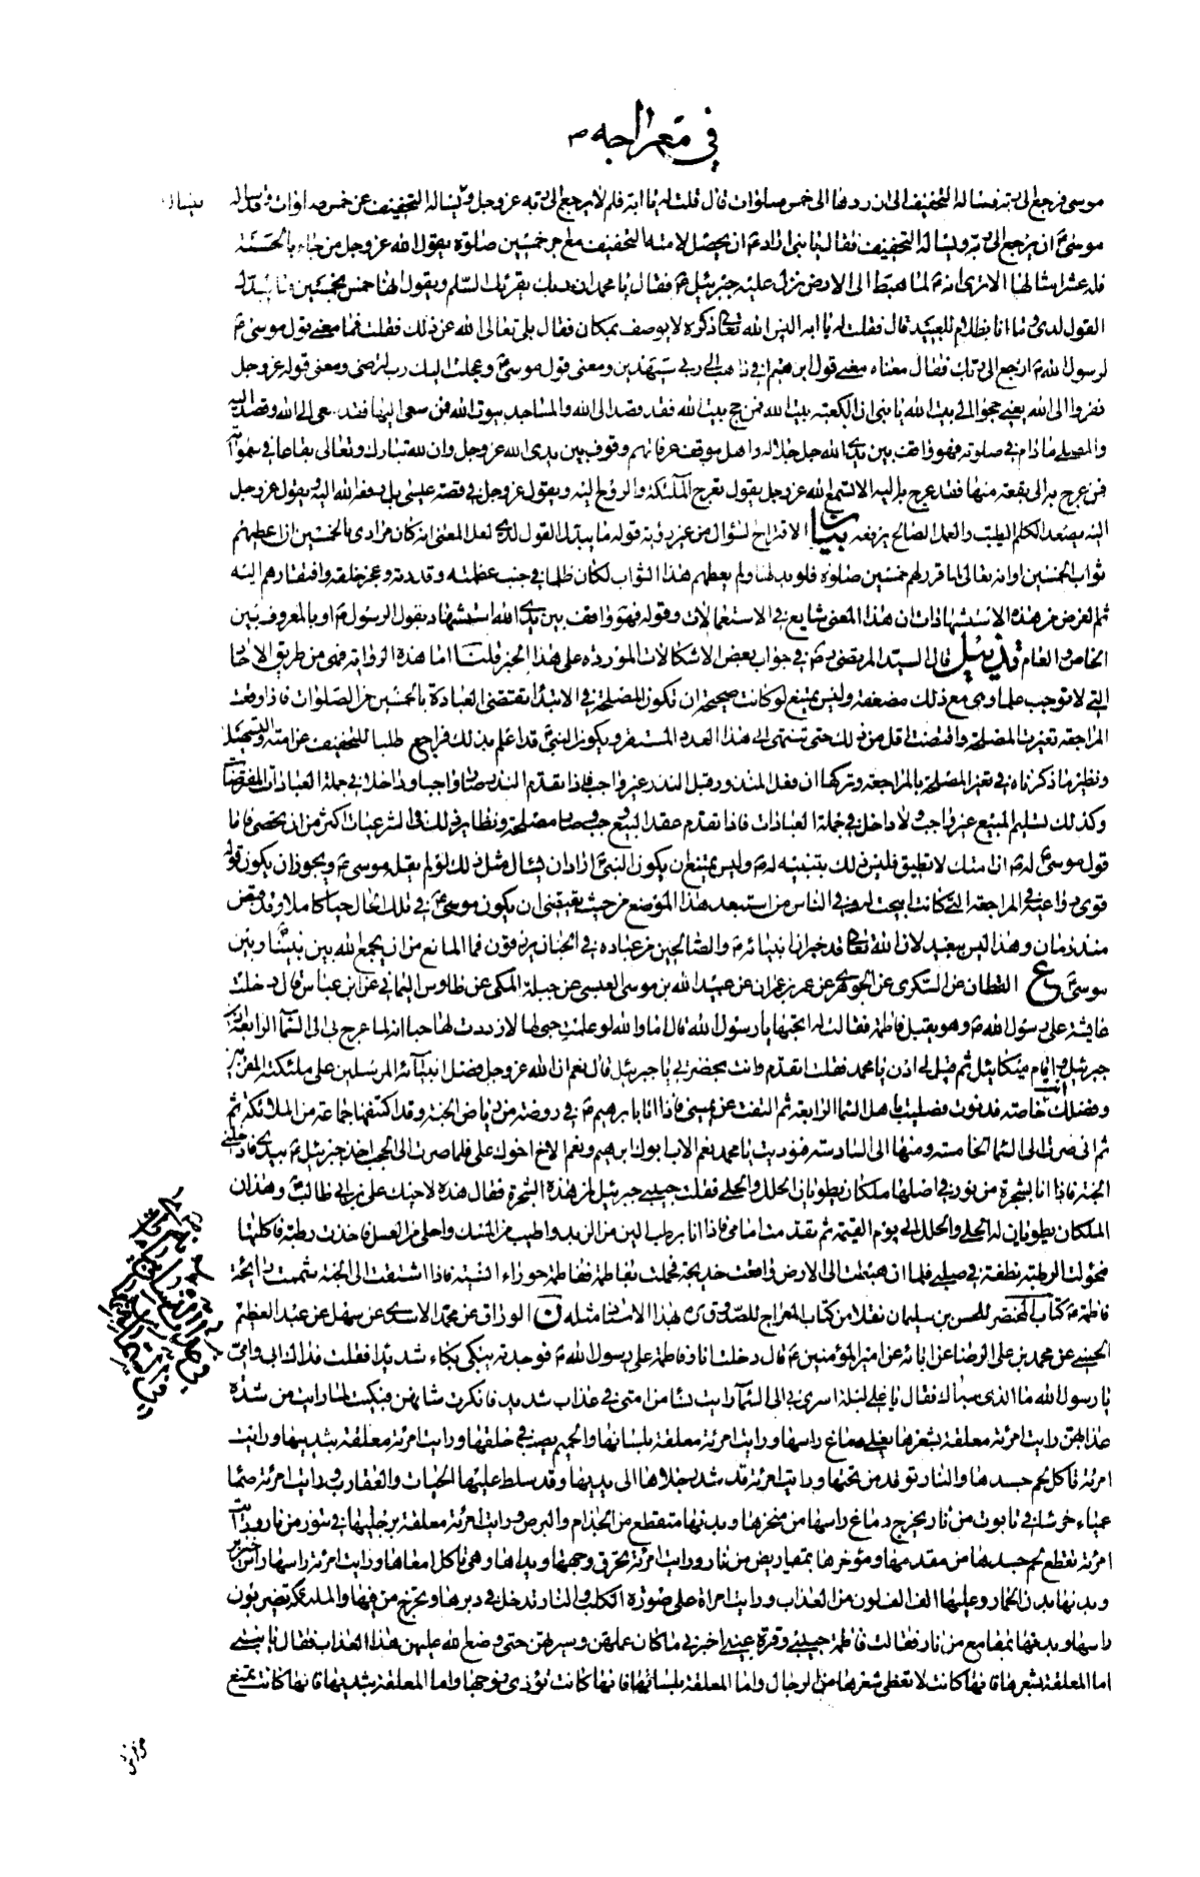 في معراجه ص
موسى فرجع الى ربه فسأله التخفيف الى ان ردها الى خمس صلوات قال قلت له يا ابة فلم لا يرجع الى ربه عز وجل ويسأله التخفيف عن خمس صلوات وقد سأله
موسى ع ان يرجع الى ربه ويسأله التخفيف فقال يا بني اراد ع ان يحصل لامته التخفيف مع اجر خمسين صلوة يقول الله عز وجل من جاء بالحسنة
فله عشر امثالها الا ترى انه ع لما هبط الى الارض نزل عليه جبرئيل ع فقال يا محمد ان ربك يقرئك السلم ويقول انها خمس بخمسين ما يبدل
القول لدي وما انا بظلام للعبيد قال فقلت له يا ابه اليس الله تعالى ذكره لا يوصف بمكان فقال بلى تعالى الله عن ذلك فقلت فما معنى قول موسى ع
لرسول الله ص ارجع الى ربك فقال معناه معنى قول ابرهيم اني ذاهب الى ربي سيهدين ومعنى قول موسى ع وعجلت اليك رب لترضى ومعنى قوله عز وجل
ففروا الى الله يعني حجوا الى بيت الله يا بني ان الكعبة بيت الله فمن حج بيت الله فقد قصد الى الله والمساجد بيوت الله فمن سعى اليها فقد سعى الى الله وقصد اليه
والمصلي ما دام في صلوته فهو واقف بين يدي الله جل جلاله واهل موقف عرفات هم وقوف بين يدي الله عز وجل وان لله تبارك وتعالى بقاعا في سمواته
فمن عرج به الى بقعة منها فقد عرج به اليه الا تسمع الله عز وجل يقول تعرج الملئكة والروح اليه ويقول عز وجل في قصة عيسى بل رفعه الله اليه ويقول عز وجل
اليه يصعد الكلم الطيب والعمل الصالح يرفعه بيان الاقتراح السؤال من غير روية قوله ما يبدل القول لدي لعل المعنى انه كان مرادي بالخمسين ان اعطيهم
ثواب الخمسين او انه تعالى لما قرر لهم خمسين صلوة فلو بدلها ولم يعطهم هذا الثواب لكان ظلما في جنب عظمته وقدرته وعجز خلقه وافتقارهم اليه
ثم الغرض من هذه الاستشهادات ان هذا المعنى شايع في الاستعمالات وقوله فهو واقف بين يدي الله استشهاد بقول الرسول ص او بالمعروف بين
الخاص والعام تذييل قال السيد المرتضى ره في جواب بعض الاشكالات الموردة على هذا الخبر قلنا اما هذه الرواية فهي من طريق الاحاد
التي لا توجب علما وهي مع ذلك مضعفة وليس يمتنع لو كانت صحيحة ان تكون المصلحة في الابتداء تقتضي العبادة بالخمسين من الصلوات فاذا وقعت
المراجعة تغيرت المصلحة واقتضت اقل من ذلك حتى تنتهى الى هذا العدد المستقر ويكون النبي ص قد اعلم بذلك فراجع طلبا للتخفيف عن امته والتسهيل
ونظير ما ذكرناه في تغير المصلحة بالمراجعة وتركها ان فعل المنذور قبل النذر غير واجب فاذا تقدم النذر صار واجبا وداخلا في جملة العبادات المفترضات
وكذلك تسليم المبيع غير واجب ولا داخل في جملة العبادات فاذا تقدم عقد البيع وجب وصار مصلحة ونظاير ذلك في الشرعيات اكثر من ان تحصى فاما
قول موسى ع له ص ان امتك لا تطيق فليس ذلك بتنبيه له ص وليس يمتنع ان يكون النبي ص اراد ان يسأل مثل ذلك لو لم يقل موسى ع ويجوز ان يكون قوله
قوى دواعيه في المراجعة التي كانت ابيحت له وفي الناس من استبعد هذا الموضع من حيث يقتضي ان يكون موسى ع في تلك الحال حيا كاملا وقد قبض
منذ زمان وهذا ليس ببعيد لان الله تعالى قد خبر ان انبيائه ع والصالحين من عباده في الجنان يرزقون فما المانع من ان يجمع الله بين نبينا وبين
موسى ع ع القطان عن السكري عن الجوهري عن عمر بن عمران عن عبيد الله بن موسى العبسي عن جبلة المكي عن طاوس اليماني عن ابن عباس قال دخلت
عايشة على رسول الله ص وهو يقبل فاطمة فقالت له اتحبها يا رسول الله قال اما والله لو علمت حبي لها لازددت لها حبا انه لما عرج بي الى السماء الرابعة اذن
جبرئيل واقام ميكائيل ثم قيل لي ادن يا محمد فقلت اتقدم وانت بحضرتي يا جبرئيل قال نعم ان الله عز وجل فضل انبيائه المرسلين على ملئكته المقربين
وفضلك انت خاصة فدنوت فصليت باهل السماء الرابعة ثم التفت عن يميني فاذا انا بابرهيم ع في روضة من رياض الجنة وقد اكتنفها جماعة من الملائكة ثم
ثم اني صرت الى السماء الخامسة ومنها الى السادسة فنوديت يا محمد نعم الاب ابوك ابرهيم ونعم الاخ اخوك علي فلما صرت الى الحجب اخذ جبرئيل ع بيدي فادخلني
الجنة فاذا انا بشجرة من نور في اصلها ملكان يطويان الحلل والحلي فقلت حبيبي جبرئيل لمن هذه الشجرة فقال هذه لاخيك علي بن ابي طالب ع وهذان
الملكان يطويان له الحلي والحلل الى يوم القيمة ثم تقدمت امامي فاذا انا برطب الين من الزبد واطيب من المسك واحلى من العسل فاخذت رطبة فاكلتها
فتحولت الرطبة نطفة في صلبي فلما ان هبطت الى الارض واقعت خديجة فحملت بفاطمة ففاطمة حوراء انسية فاذا اشتقت الى الجنة شممت رائحة
فاطمة ع كتاب المحتضر للحسن بن سليمان نقلا من كتاب المعراج للصدوق ره بهذا الاسناد مثله ن الوراق عن محمد الاسدي عن سهل عن عبد العظيم
الحسني عن محمد بن علي الرضا عن ابائه عن امير المؤمنين ع قال دخلت انا وفاطمة على رسول الله ص فوجدته يبكي بكاء شديدا فقلت فداك ابي وامي
يا رسول الله ما الذي ابكاك فقال يا علي ليلة اسري بي الى السماء رايت نساء من امتي في عذاب شديد فانكرت شانهن فبكيت لما رايت من شدة
عذابهن رايت امرئة معلقة بشعرها يغلي دماغ راسها ورايت امرئة معلقة بلسانها والحميم يصب في حلقها ورايت امرئة معلقة بثدييها ورايت
امرئة تاكل لحم جسدها والنار توقد من تحتها ورايت امرئة قد شد رجلاها الى يديها وقد سلط عليها الحيات والعقارب ورايت امرئة صماء
عمياء خرساء في تابوت من نار يخرج دماغ راسها من منخرها وبدنها متقطع من الجذام والبرص ورايت امرئة معلقة برجليها في تنور من نار ورايت
امرئة تقطع لحم جسدها من مقدمها ومؤخرها بمقاريض من نار ورايت امرئة تحرق وجهها ويداها وهي تاكل امعاها ورايت امرئة راسها راس خنزير
وبدنها بدن الحمار وعليها الف الف لون من العذاب ورايت امراة على صورة الكلب والنار تدخل في دبرها وتخرج من فيها والملئكة يضربون
راسها وبدنها بمقامع من نار فقالت فاطمة حبيبي وقرة عيني اخبرني ما كان عملهن وسيرتهن حتى وضع الله عليهن هذا العذاب فقال يا بنيتي
اما المعلقة بشعرها فانها كانت لا تغطي شعرها من الرجال واما المعلقة بلسانها فانها كانت تؤذي زوجها واما المعلقة بثدييها فانها كانت تمتنع